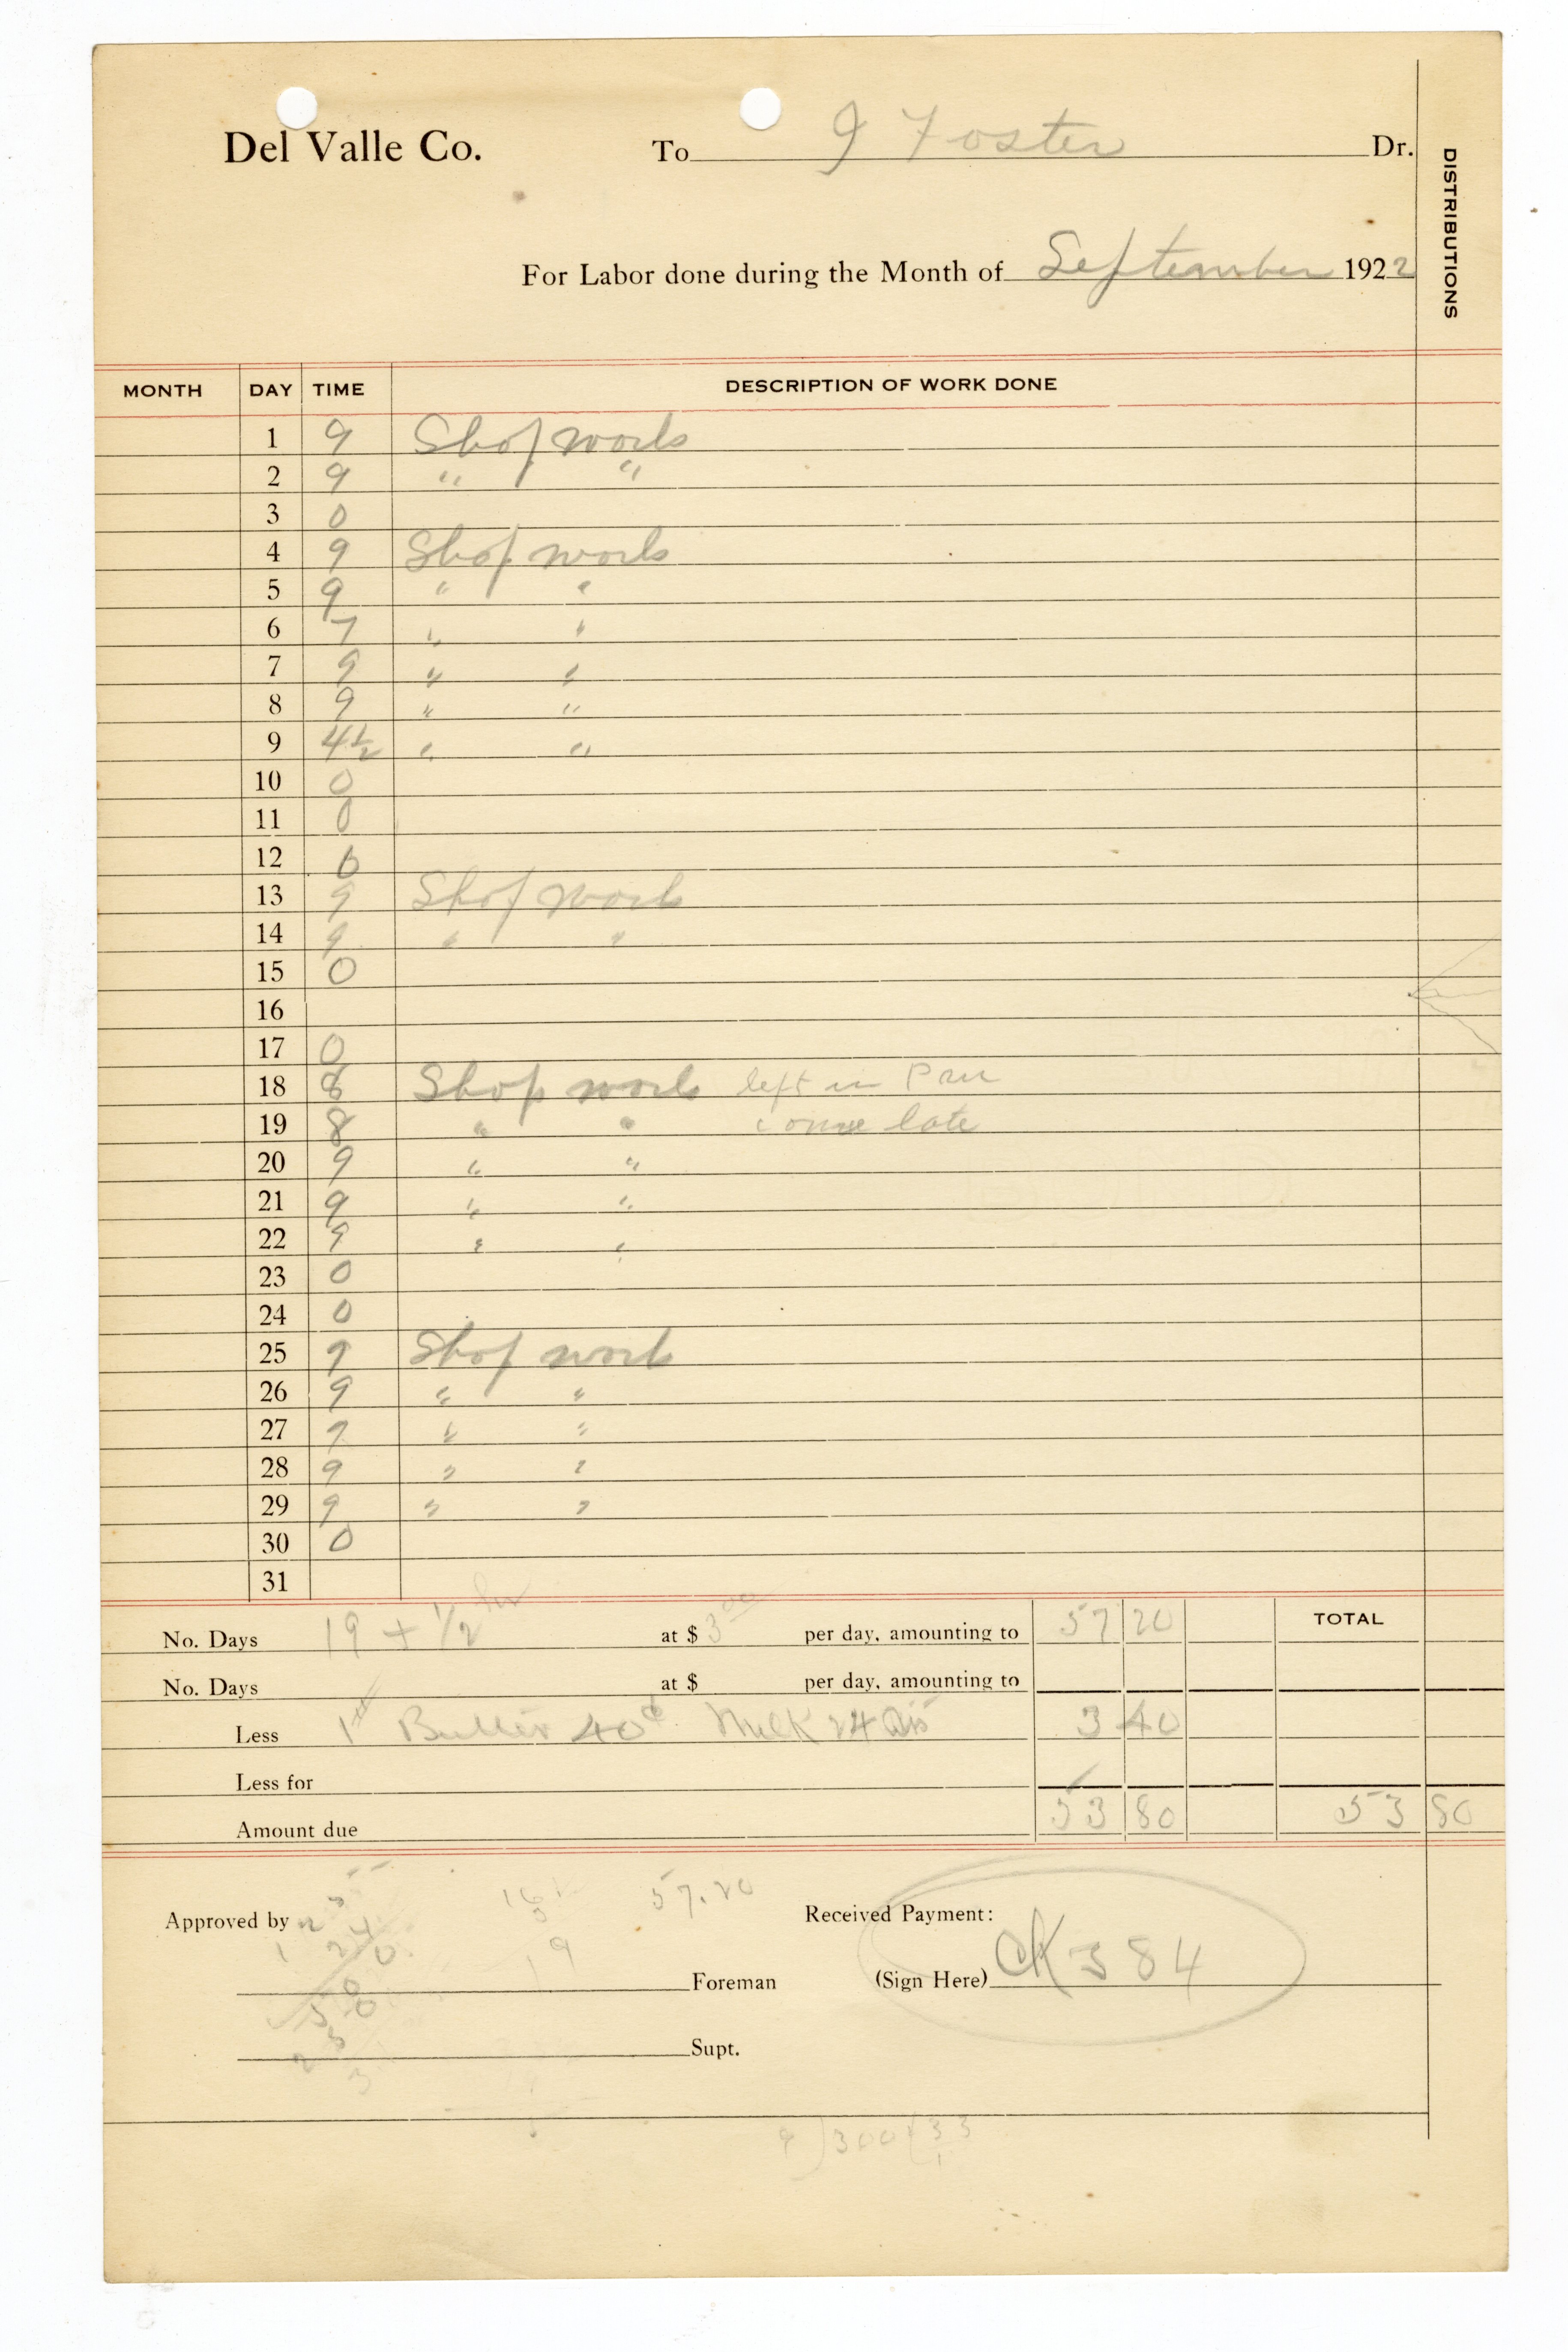 Del Valle Co. To J Foster Dr.
DISTRIBUTIONS
For Labor done during the Month of September 1922
MONTH DAY TIME DESCRIPTION OF WORK DONE
1 9 Shop work
2 9 " "
3 0
4 9 Shop work
5 9 " "
6 7 " "
7 9 " "
8 9 " "
9 4½ " "
10 0
11 0
12 0
13 9 Shop work
14 9 " "
15 0
16
17 0
18 8 Shop work left in
19 8 " " come late
20 9 " "
21 9 " "
22 9 " "
23 0
24 0
25 9 Shop work
26 9 " "
27 9 " "
28 9 " "
29 9 " "
30 0
31
No. Days 19 + 1/2 hr at $ 3 00 per day, amounting to 57 20 TOTAL
No. Days at $ per day, amounting to
Less 1# Butter 40¢ Milk 24 Qts 3 40
Less for
Amount due 53 80 53 80
57.20
Approved by Received Payment:
19
Foreman (Sign Here) CK 384
Supt.
9)300(33